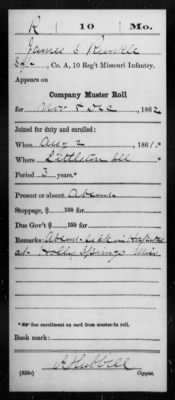 R | 10 | Mo.
James S Runkle
, Co. A, 10 Reg't Missouri Infantry.
Appears on
Company Muster Roll
for Nov & Dec, 1862
Joined for duty and enrolled:
When Aug 2, 1861.*
Where Littleton Ill
Period 3 years.*
Present or absent Absent
Stoppage, $ 100 for
Due Gov't $ 100 for
Remarks: Absent sick in Hospital
at Holly Springs Miss
*See enrollment on card from muster-in roll.
Book mark:
Hubbell
(358c) Copyist.